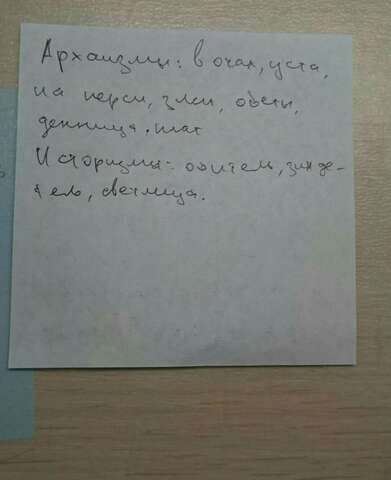 Архаизмы: в очах, уста,
на перси, злси, обеты,
денница. тат
Историзмы: обитель, зижде-
тель, светлица.